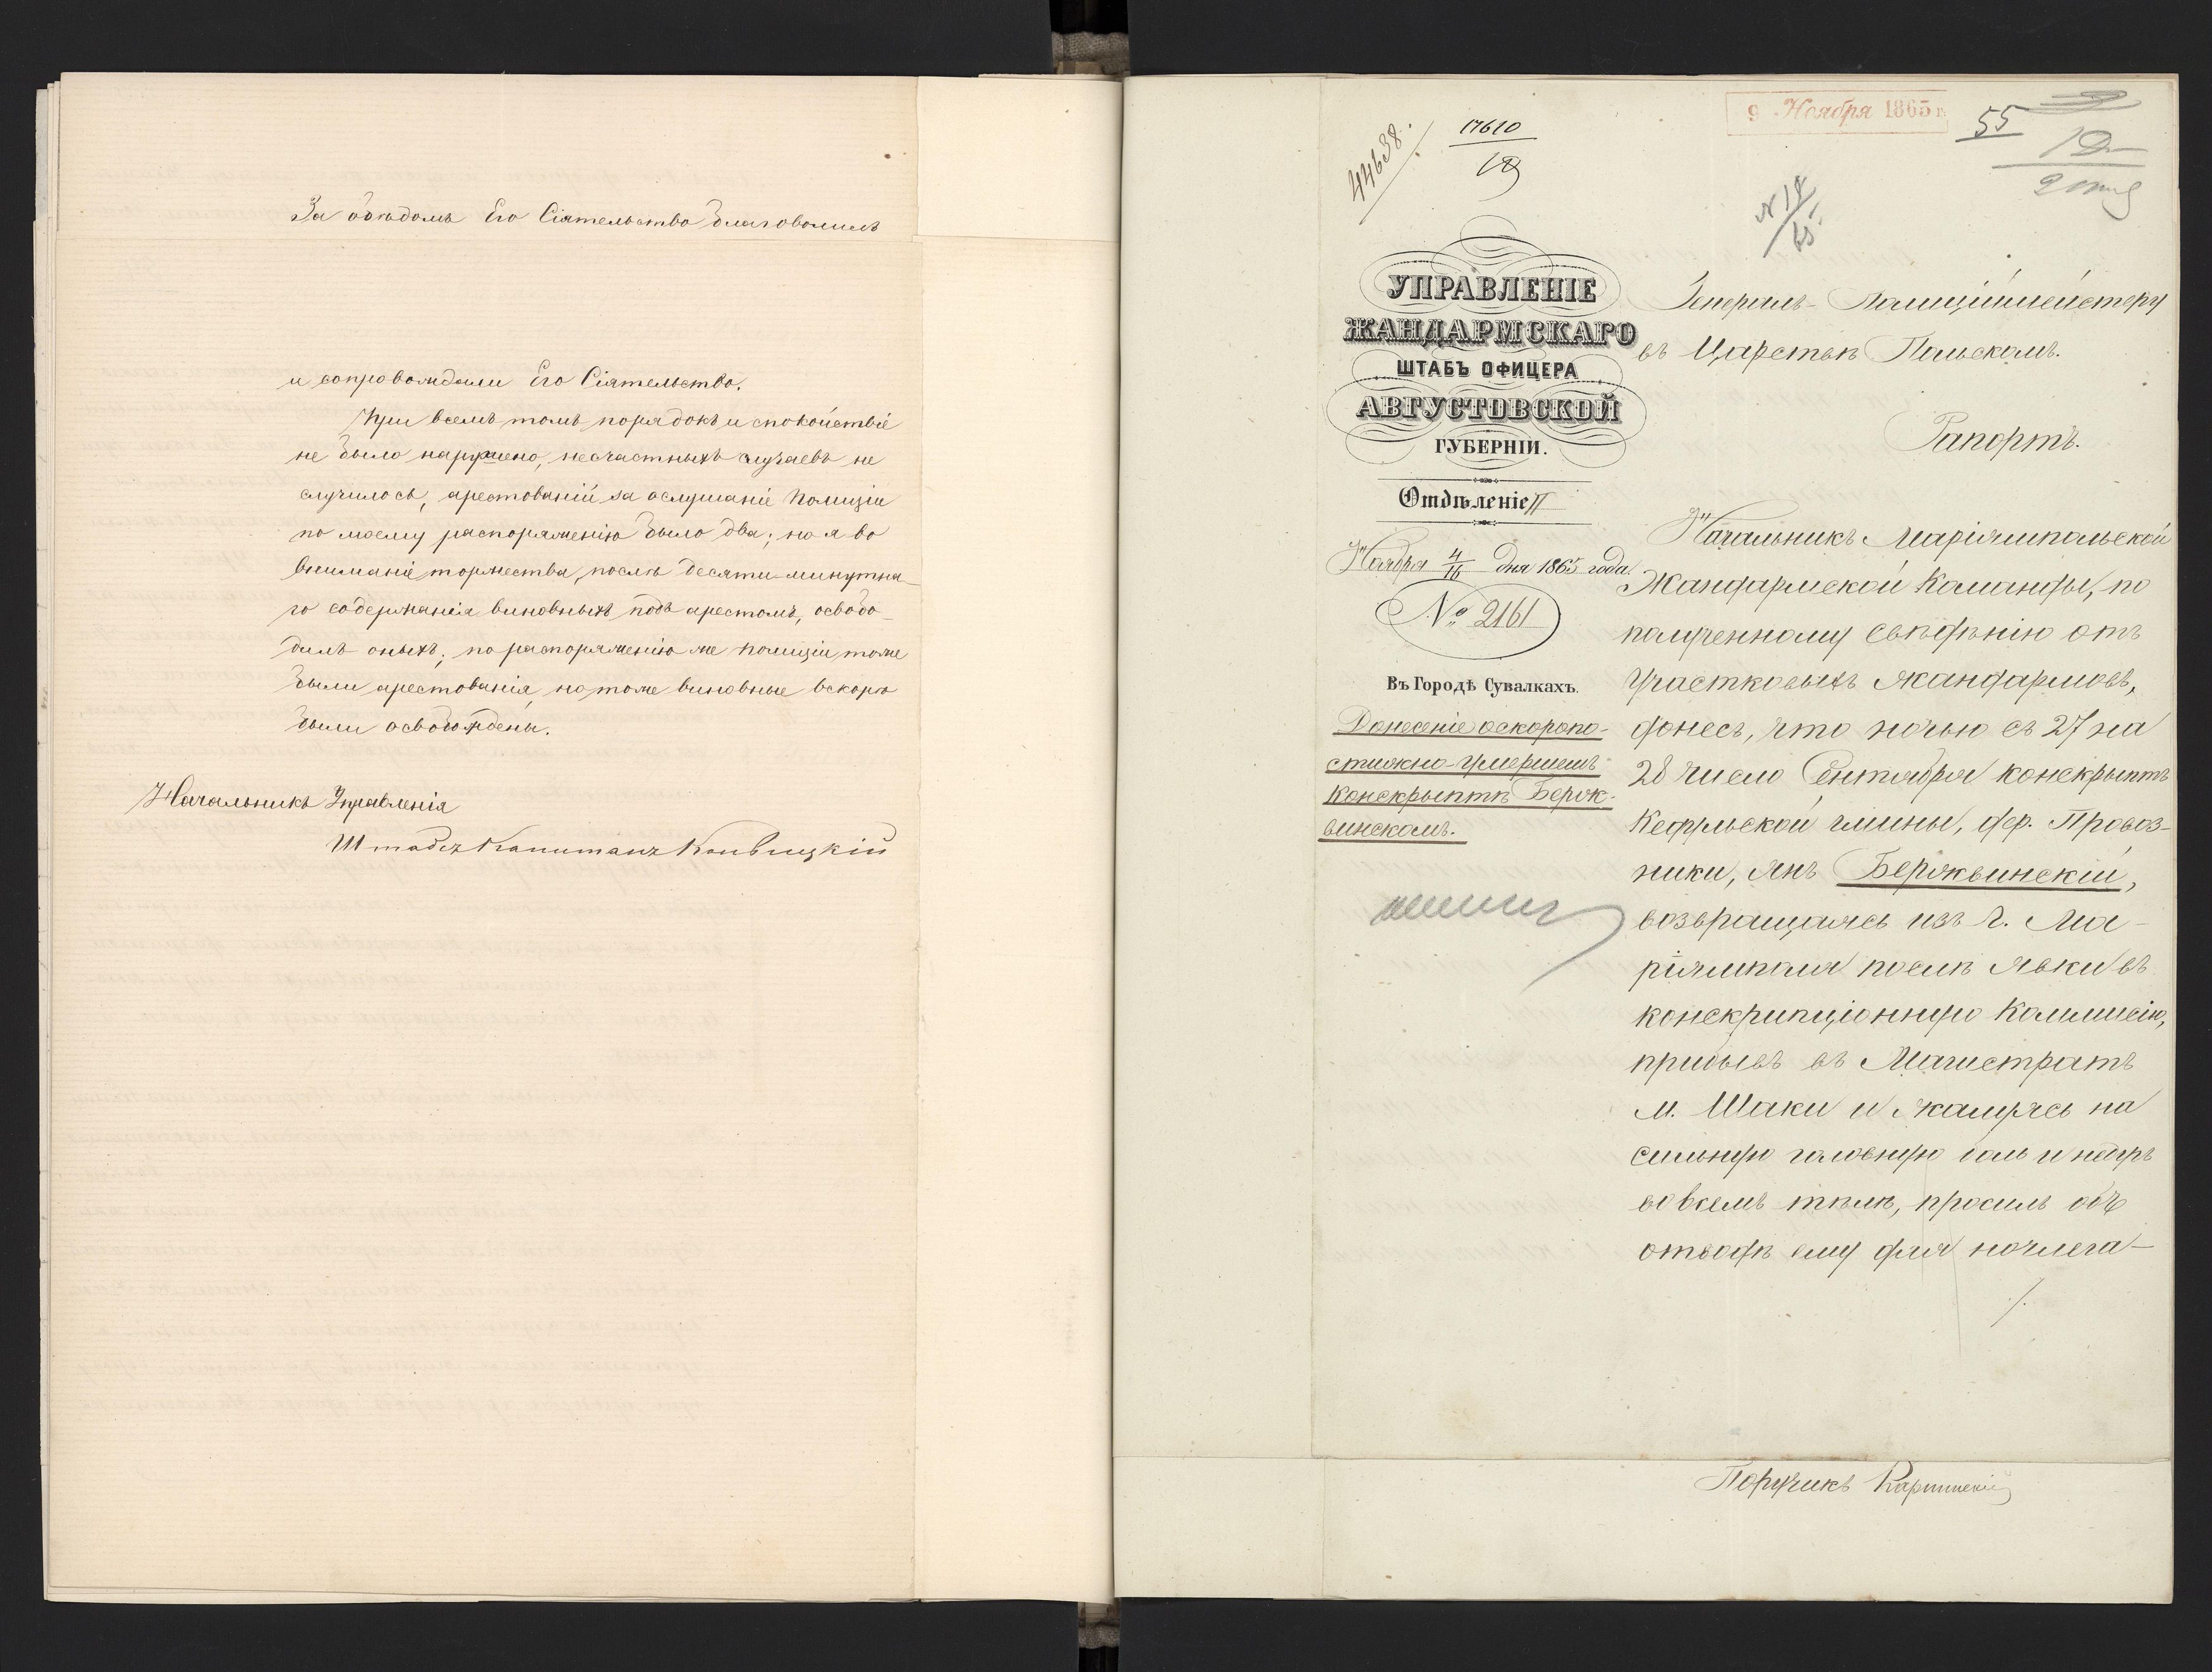 За обѣдомъ Его Сіятельство благоволилъ
и сопровождали Его Сіятельство.
При всемъ томъ порядокъ и спокойствіе
не было нарушено, несчастныхъ случаевъ не
случилось, арестованій за ослушаніе полиціи
по моему распоряженію было два; но я во
вниманіе торжества, послѣ десяти-минутна-
го содержанія виновныхъ подъ арестомъ, освобо-
дилъ оныхъ; по распоряженію же полиціи тоже
были арестованія, но тоже виновные вскорѣ
были освобождены.
Начальникъ Управленія
Штабсъ Капитанъ
9 Ноября 1865 г.
55
44638.
17610
19
12
N 18
65
УПРАВЛЕНІЕ
ЖАНДАРМСКАГО
ШТАБЪ ОФИЦЕРА
АВГУСТОВСКОЙ
ГУБЕРНІИ.
Отдѣленіе II
Ноября 4/16 дня 1865 года.
№ 2161
Въ Городѣ Сувалкахъ.
Донесеніе о скоропо-
стижно-умершемъ
конскрыптѣ Берж-
винскомъ.
Генералъ-Полиціймейстеру
въ Царствѣ Польскомъ.
Рапортъ.
Начальникъ Маріямпольской
Жандармской Команды, по
полученному свѣдѣнію отъ
Участковыхъ жандармовъ,
донесъ, что ночью съ 27 на
28 число Сентября конскрыптъ
Кедульской гмины, дер. Провоз-
ники, Янъ Бержвинскій,
возвращаясь изъ г. Ма-
ріямполя послѣ явки въ
конскрипціонную Коммисію,
прибывъ въ Магистратъ
м. Шаки и жалуясь на
сильную головную боль и
во всемъ тѣлѣ, просилъ объ
отводѣ ему для ночлега
./.
Поручикъ